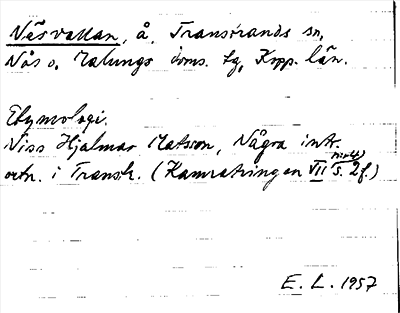 Näsvallan, å, Transtrands sn,
Nås o. Malungs doms. tg, Kopp. län.
Etymologi.
Niss Hjalmar Matsson, Några intr.
ortn. i Transtr. (Kamratringen VII s. 2f.)
E. L. 1957